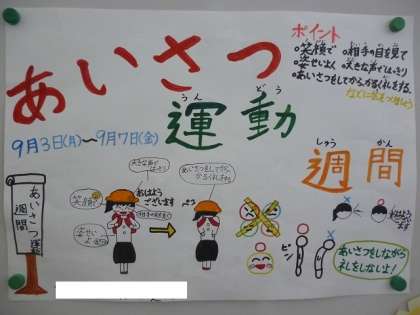 あいさつ
運動
うん どう
週間
しゅう かん
9月3日(月)～9月7日(金)
ポイント
笑顔で
相手の目を見て
姿せいよく
大きな声ではっきり
あいさつをしてからかるく礼をする。
などに気をつけましょう
あいさつ運動
週間
笑顔で
大きな声で
はっきり
おはよう
ございます
相手の目を見て
姿せい
よく
あいさつをしてから、
かるく礼をする
ピン
あいさつをしながら
礼をしないよ!